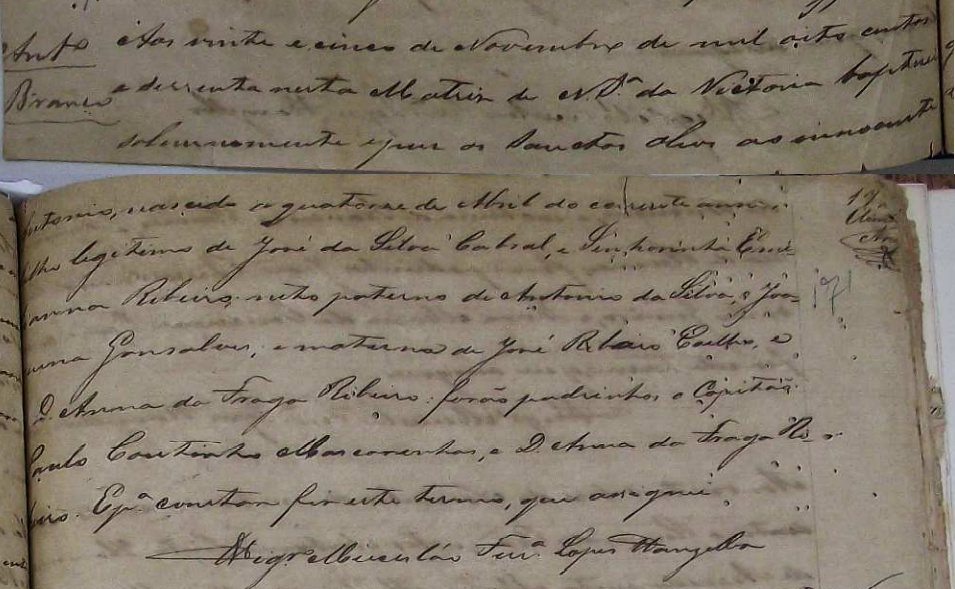 Ant.o Aos vinte e cinco de Novembro de mil oito centos
Branco e secenta nesta Matriz de N. S.ª da Victoria baptisei
solemnemente e puz os Sanctos Oleos ao innocente
Antonio, nascido a quatorze de Abril do corrente anno,
filho legitimo de José da Silva Cabral, e Sinhorinha
anna Ribeiro; neto paterno de Antonio da Silva, e Joan-
na Gonsalves, e materno de José Coelho, e
D. Anna da Fraga Ribeiro: forão padrinhos o Capitão
Paulo Coutinho Mascarenhas, e D. Anna da Fraga Ri-
beiro. E p.ª constar fiz este termo, que assignei
Fer.ª Lopes
171